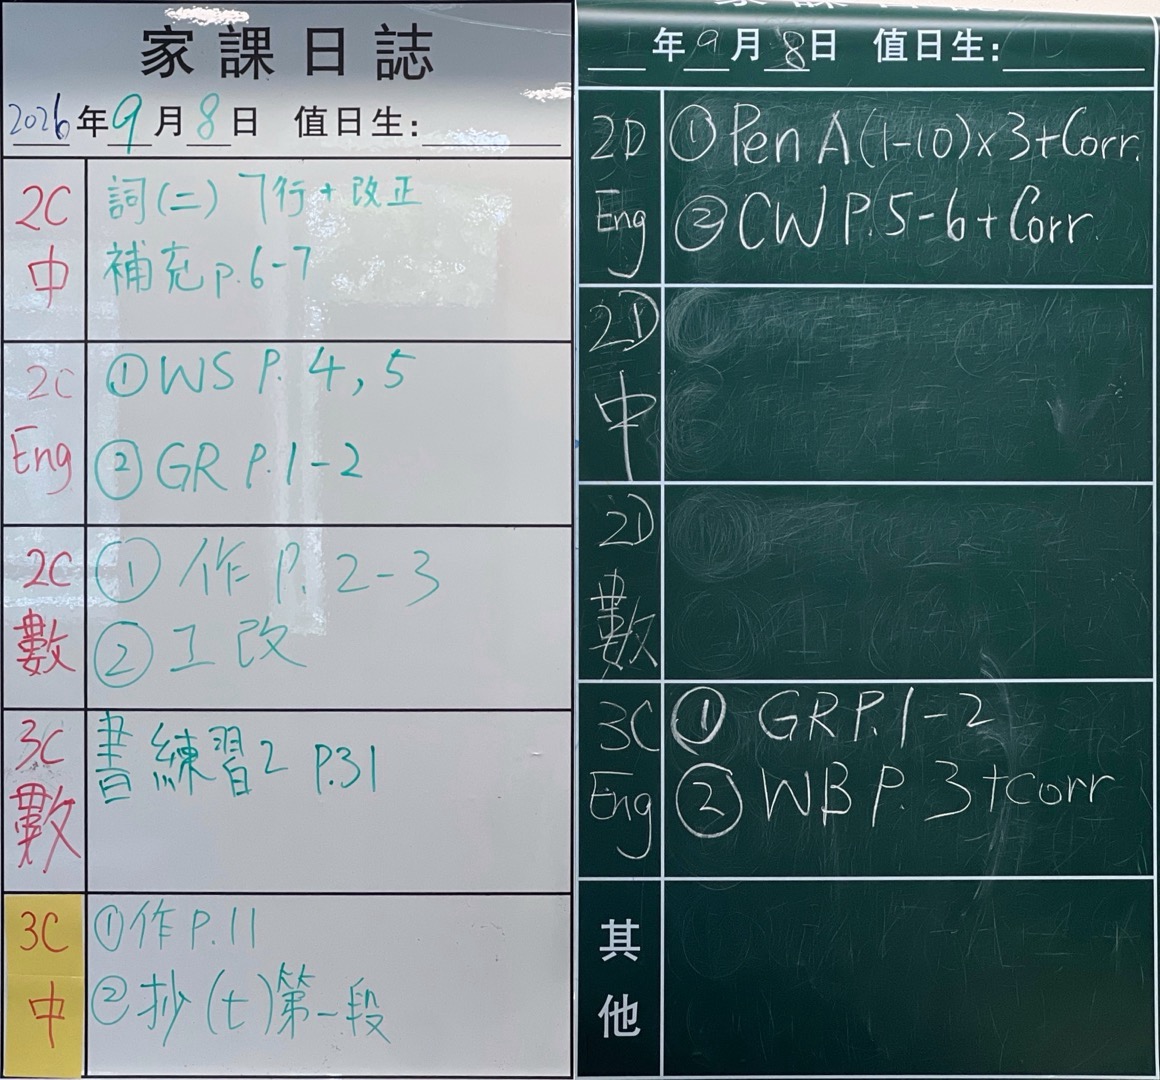 家課日誌
2026年9月8日 值日生:
2C 中
詞(二) 7行+改正
補充p.6-7
2C Eng
①WS P. 4, 5
②GR P.1-2
2C 數
①作P. 2-3
②工改
3C 數
書練習2 P.31
3C 中
①作P.11
②抄(七)第一段
年9月8日 值日生:
2D Eng
①Pen A(1-10)x3+Corr.
②CW P.5-6+Corr.
2D 中
2D 數
3C Eng
①GR P.1-2
②WB P. 3+corr
其他